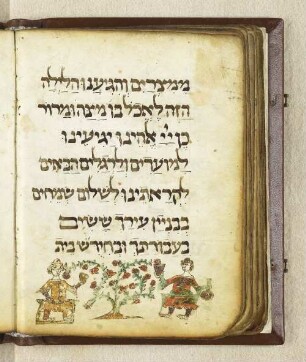 ממצרים והגיענו הלילה
הזה לאכל בו מצה ומרור
כן יי אלהינו יגיענו
למועדים ולרגלים הבאים
לקראתינו לשלום שמחים
בבניין עירך ששים
בעבודתך ובחידוש בית